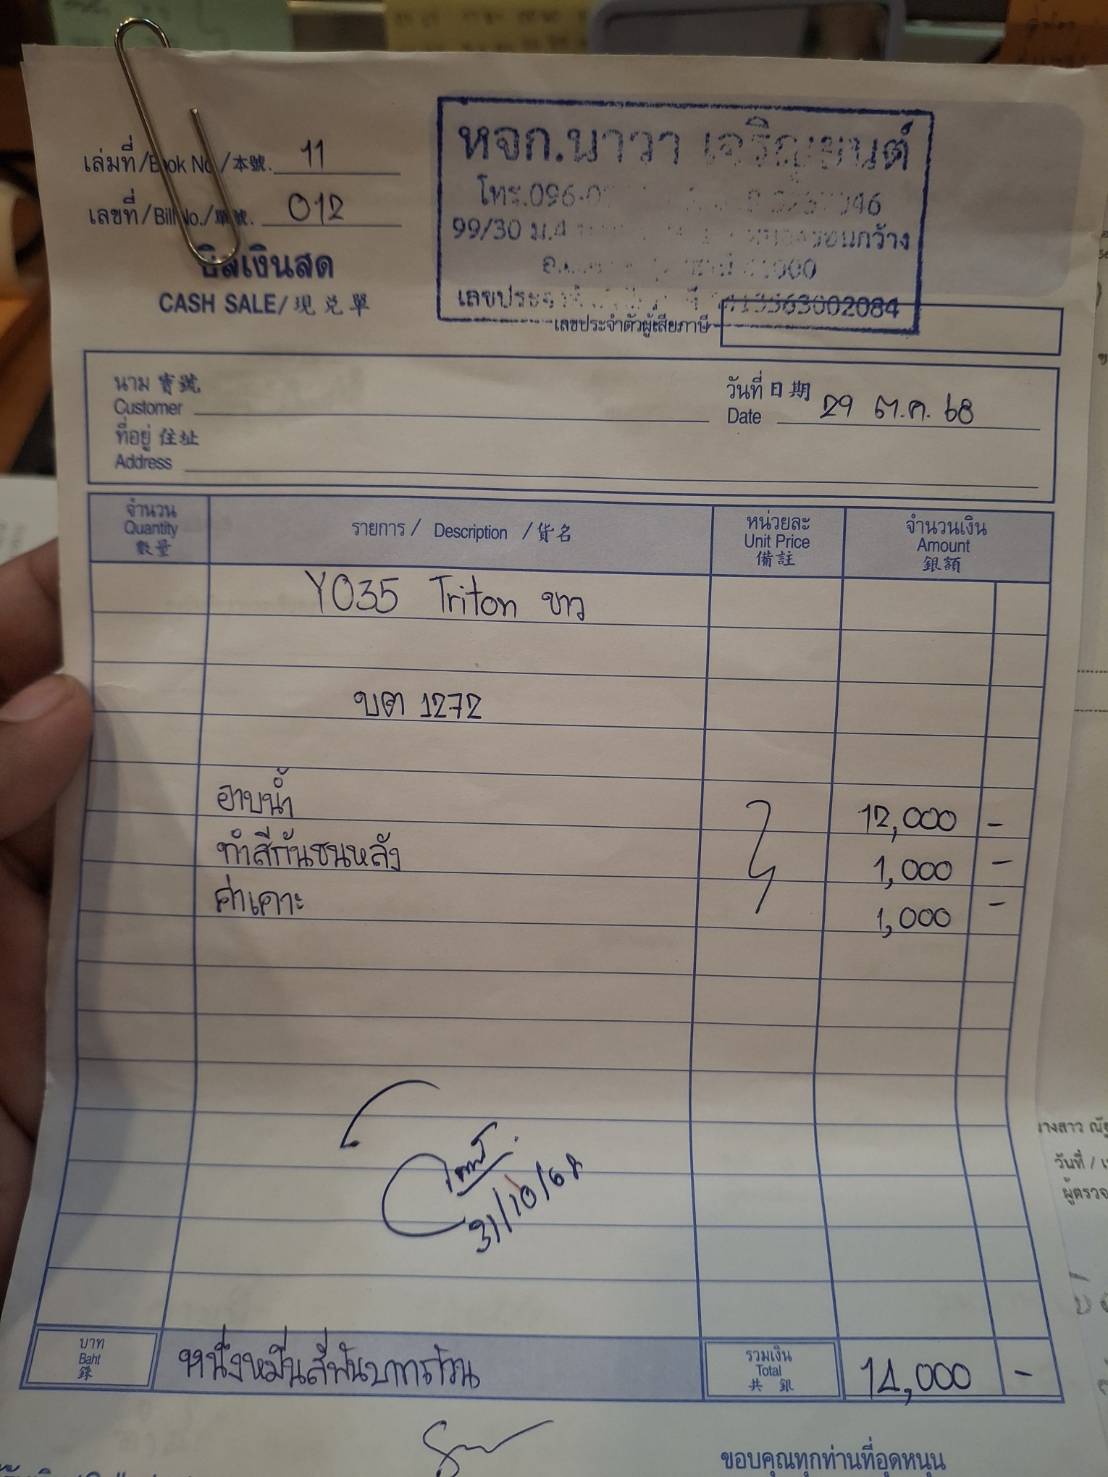 เล่มที่/Book No./本號. 11
เลขที่/Bill No./單號. 012
บิลเงินสด
CASH SALE/現兑單
หจก.นาวา เจริญยนต์
โทร.096-0 046
99/30 ม.4 กว้าง
000
เลขประ 002084
เลขประจำตัวผู้เสียภาษี
นาม 寶號
Customer
ที่อยู่ 住址
Address
วันที่ 日期
Date 29 ต.ค. 68
จำนวน
Quantity
數量
รายการ / Description / 貨名
หน่วยละ
Unit Price
備註
จำนวนเงิน
Amount
銀額
Y035 Triton ขาว
บต 1272
อาบน้ำ 12,000 -
ทำสีกันชนหลัง 1,000 -
ค่าเคาะ 1,000 -
31/10/68
บาท
Baht
銖
หนึ่งหมื่นสี่พันบาทถ้วน
รวมเงิน
Total
共銀
14,000 -
ขอบคุณทุกท่านที่อุดหนุน
างสาว ณัฐ
วันที่ / เ
ผู้ตรวจ